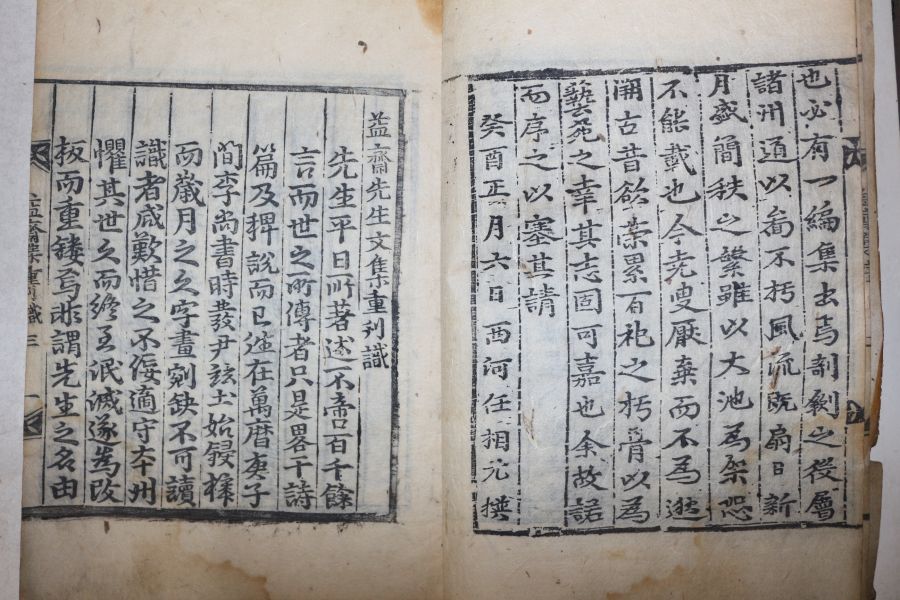 也必有一編集出焉剞劂之役屬
諸州通以啚不朽風流旣扇日新
月盛簡秩之繁雖以大池爲架恐
不能載也今尭叟厭棄而不爲遊
淵古昔欲榮累百祀之朽骨以爲
藝苑之幸其志固可嘉也余故諾
而序之以塞其請
癸酉正月六日西河任相元撰
益齋先生文集重刊識
先生平日所著述不啻百千餘
言而世之所傳者只是畧干詩
篇及稗說而已迆在萬曆庚子
間李尚書時發尹玆土始鋟榟
而歲月之久字畫剜缺不可讀
識者咸歎惜之不佞適守本州
懼其世久而終至泯滅遂爲改
板而重鏤焉非謂先生之名由
益齋集重刊識 三